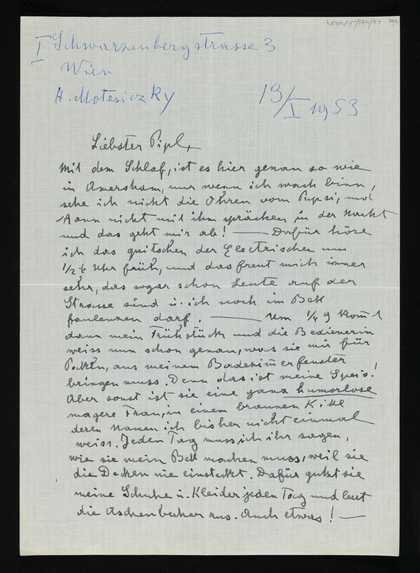 I Schwarzenbergstrasse 3
Wien
H. Motesiczky
19/I 1953
Liebster Pipl,
Mit dem Schlaf, ist es hier genau so wie
in Amersham, nur wenn ich wach binn,
sehe ich nicht die Ohren vom Pupsi, und
kann nicht mit ihm spräcken in der Nacht
und das geht mir ab! — Dafür höre
ich das quitschen der Electrischen um
1/2 6 Uhr früh, und das freut mich immer
sehr, das sogar schon Leute auf der
Strasse sind u. ich noch im Bett
faulenzen darf. — Um 1/4 9 kom̄t
dann mein Frühstück und die Bedienerin
weiss nun schon genau, was sie mir für
aus meinem Badezim̄erfenster
bringen muss. Denn das ist meine Speis!
Aber sonst ist sie eine ganz humorlose
magere Frau, in einem braunen Kittl
deren Namen ich bisher nicht einmal
weiss. Jeden Tag muss ich ihr sagen,
wie sie mein Bett machen muss, weil sie
die Decken nie einsteckt. Dafür putzt sie
meine Schuhe u. Kleider jeden Tag und leert
die Aschenbecher aus. Auch etwas! —